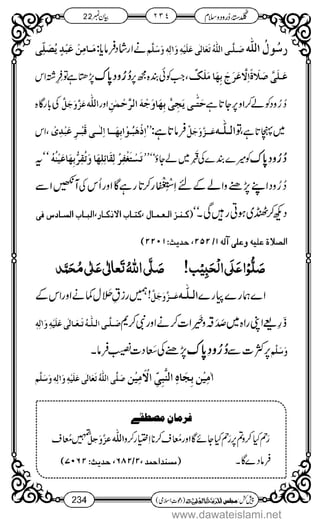 گلدستۂ درود و سلام ۲۳۴ بیان نمبر 22
رسولُ اللّٰہ صَلَّی اللّٰہُ تَعَالٰی عَلَیْہِ وَاٰلِہٖ وَسَلَّم نے ارشاد فرمایا: مَا مِنْ عَبْدٍ یُّصَلِّیْ
عَلَیَّ صَلَاۃً اِلَّا عَرَجَ بِہَا مَلَکٌ، جب کوئی بندہ مجھ پر دُرُودِ پاک پڑھتا ہے تو فرشتہ اس
دُرُود کو لے کر اوپر جاتا ہے حَتّٰی یُجِیْءَ بِہَا وَجْہَ الرَّحْمٰن اور اللّٰہ عَزَّوَجَلَّ کی بارگاہ
میں پہنچاتا ہے، تو اللّٰہ عَزَّوَجَلَّ فرماتا ہے: ’’اِذْہَبُوْا بِہَا اِلٰی قَبْرِ عَبْدِیْ، اس
دُرُودِ پاک کو میرے بندے کی قبر میں لے جاؤ‘‘ ’’تَسْتَغْفِرُ لِقَائِلِہَا وَتَقَرُّ بِہَا عَیْنُہٗ‘‘ یہ
دُرُود اپنے پڑھنے والے کے لئے اِسْتِغْفار کرتا رہے گا اور اُس کی آنکھیں اسے
دیکھ کر ٹھنڈی ہوتی رہیں گی۔‘‘ (کنز العمال، کتاب الاذکار، الباب السادس فی
الصلاۃ علیہ وعلی آلہ، ۱/۲۵۲، حدیث: ۲۲۰۱)
صَلُّوْا عَلَی الْحَبِیْب! صَلَّی اللّٰہُ تَعَالٰی عَلٰی مُحَمَّد
اے ہمارے پیارے اللّٰہ عَزَّوَجَلَّ! ہمیں رزقِ حلال کمانے اور اس کے
ذریعے اپنی راہ میں صَدَقہ وخیرات کرنے اور نبیِ کریم صَلَّی اللّٰہُ تَعَالٰی عَلَیْہِ وَاٰلِہٖ
وَسَلَّم پر کثرت سے دُرُودِ پاک پڑھنے کی سعادت نصیب فرما۔
اٰمِیْن بِجَاہِ النَّبِیِّ الْاَمِیْن صَلَّی اللّٰہُ تَعَالٰی عَلَیْہِ وَاٰلِہٖ وَسَلَّم
فرمانِ مصطفٰے
رحم کیا کرو تم پر رحم کیا جائے گا اور معاف کرنا اختیار کرو اللّٰہ عَزَّوَجَلَّ تمہیں معاف
فرمادے گا۔ (مسند احمد ۲/۶۸۲، حدیث: ۷۰۶۲)
234
www.dawateislami.net